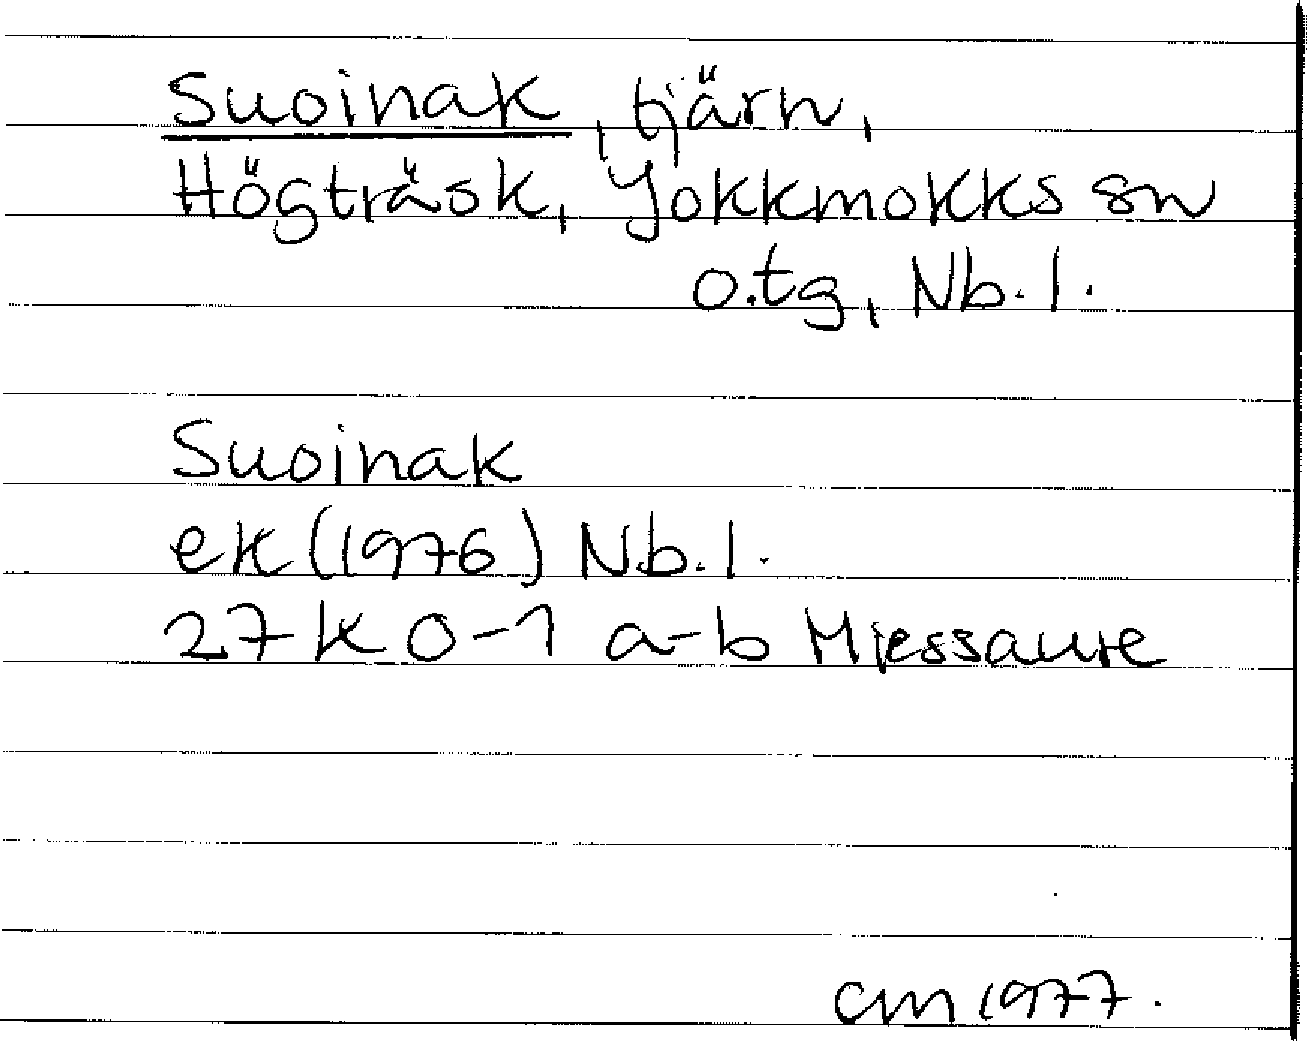 Suoinak, tjärn,
Högträsk, Jokkmokks sn
o.tg, Nb. l.
Suoinak
ek (1976) Nb. l.
27 K 0-1 a-b Mjessaure
CM 1977.